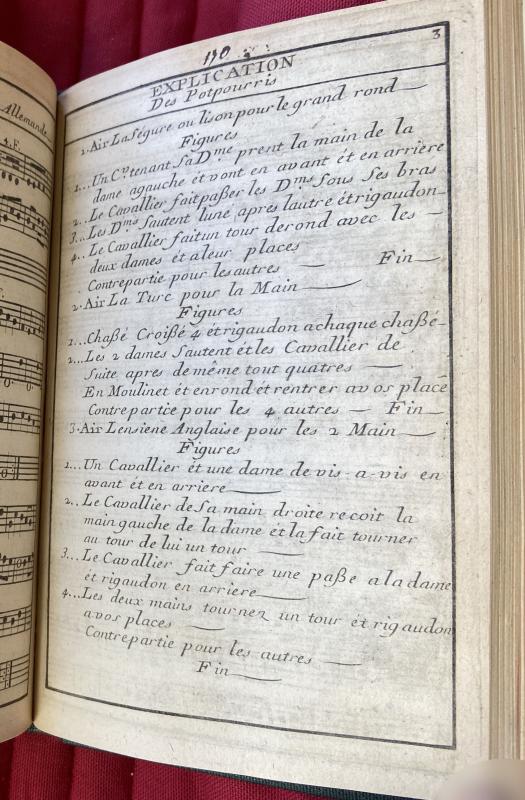 Allemande
4. F.
190
3
EXPLICATION
Des Potpourris
1. Air La Ségure ou lison pour le grand rond
Figures
1... Un Cer tenant Sa Dme prent la main de la
dame agauche et vont en avant ét en arriere
2... Le Cavallier fait paßer les Dms Sous Ses bras
3... Les Dms Sautent lune apres lautre ét rigaudon
4.. Le Cavallier fait un tour de rond avec les
deux dames ét a leur places
Contrepartie pour les autres Fin
2. Air La Turc pour la Main
Figures
1... Chaßé Croißé 4 ét rigaudon a chaque chaßé
2... Les 2 dames Sautent ét les Cavallier de
Suite apres de même tout quatres
En Moulinet ét en rond ét rentrer a vos place
Contrepartie pour les 4 autres Fin
3. Air Lensiene Anglaise pour les 2 Main
Figures
1... Un Cavallier ét une dame de vis-a-vis en
avant ét en arriere
2.. Le Cavallier de Sa main droite recoit la
main gauche de la dame ét la fait tourner
au tour de lui un tour
3... Le Cavallier fait faire une paße a la dame
ét rigaudon en arriere
4... Les deux mains tournez un tour ét rigaudon
a vos places
Contrepartie pour les autres
Fin